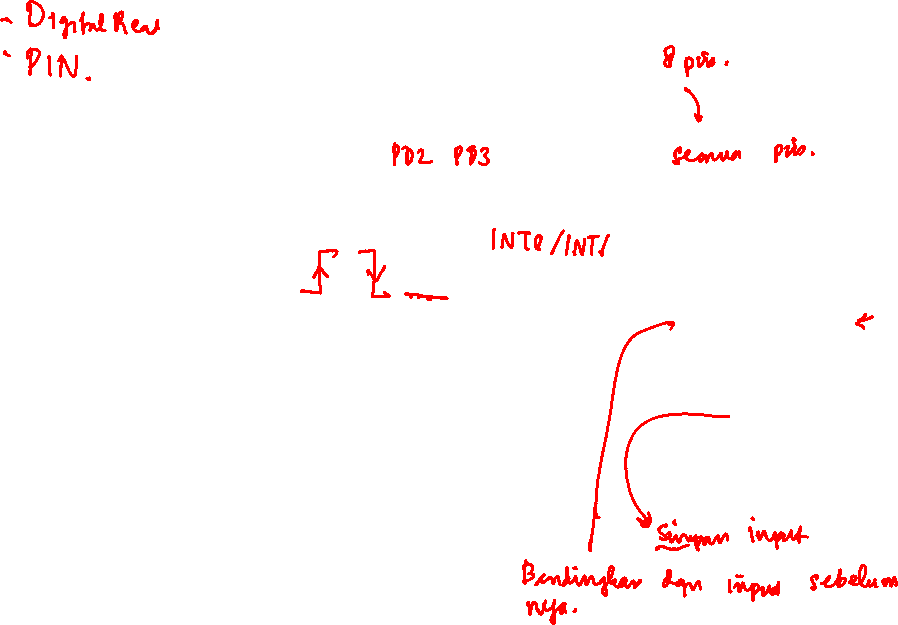 - Digital Read
- PIN.
8 pin.
PD2 PD3
semua pin.
INT0/INT1
Simpan input
Bandingkan dgn input sebelum
nya.